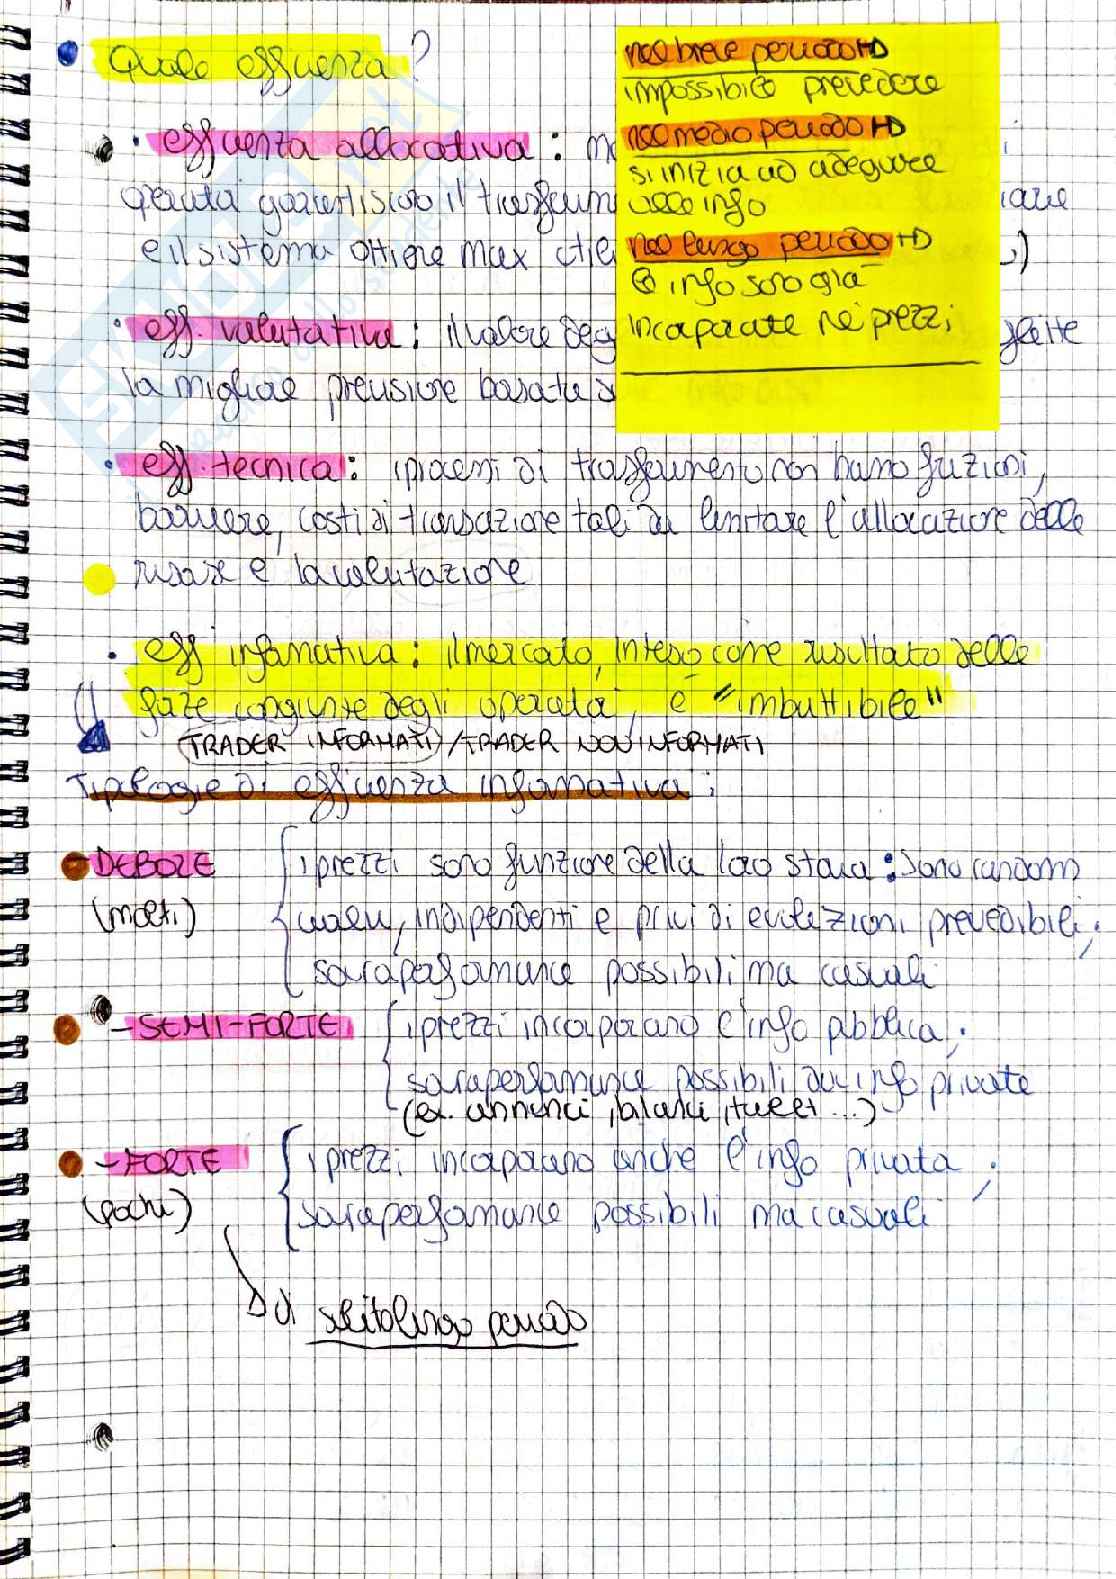 Quale efficienza?
• efficienza allocativa:
operatori garantiscono il
e il sistema ottiene max
• eff. valutativa: il valore
la migliore previsione basata
• eff. tecnica: i processi di trasferimento non hanno frizioni,
barriere, costi di transazione tali da limitare l'allocazione delle
risorse e la valutazione
nel breve periodo →
impossibile prevedere
nel medio periodo →
si inizia ad adeguare
alle info
nel lungo periodo →
info sono già
incorporate nei prezzi
• eff informativa: il mercato, inteso come risultato delle
forze congiunte degli operatori, è "imbattibile"
TRADER INFORMATI / TRADER NON INFORMATI
Tipologie di efficienza informativa:
- DEBOLE { i prezzi sono funzione della loro storia: sono random
(molti) walk, indipendenti e privi di evoluzioni prevedibili;
sovraperformance possibili ma casuali
- SEMI-FORTE { i prezzi incorporano l'info pubblica;
sovraperformance possibili da info private
(ex. annunci, bilanci, tweet...)
- FORTE { i prezzi incorporano anche l'info privata;
(pochi) sovraperformance possibili ma casuali
di solito lungo periodo